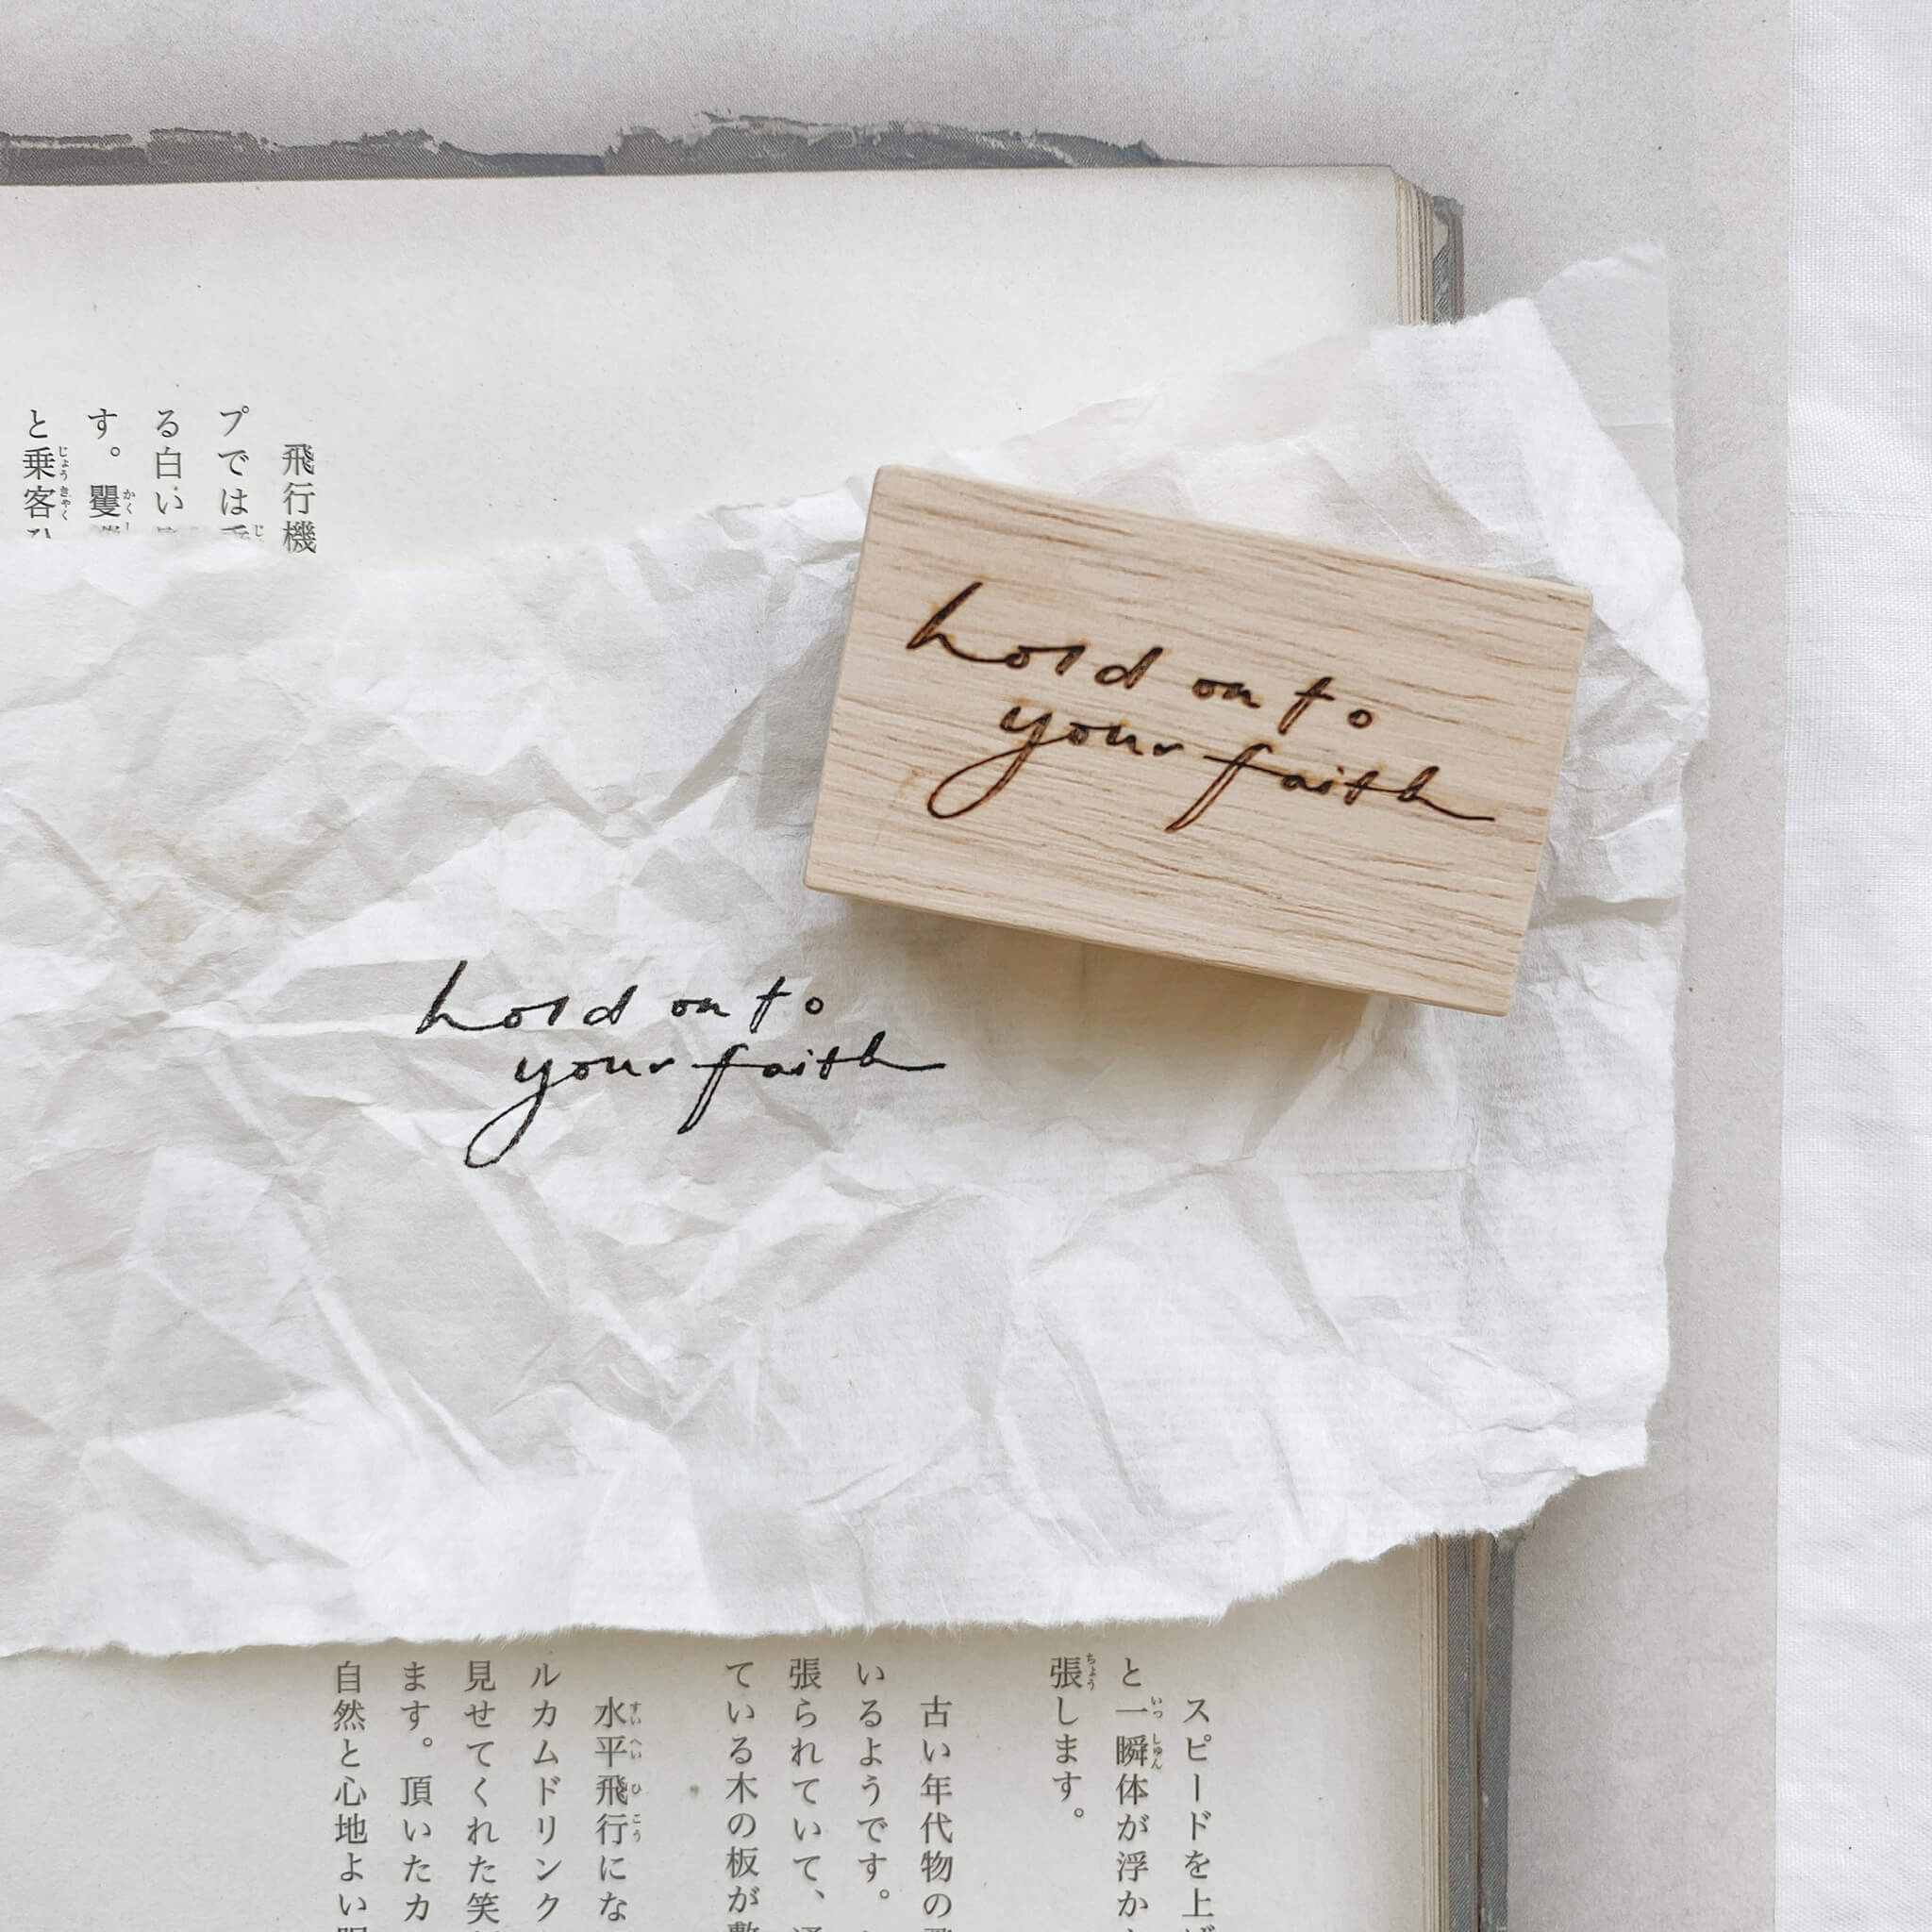 hold on to
your faith
hold on to
your faith
飛行機
プでは
る白い
す。矍
と乗客
スピードを上
と一瞬体が浮か
張します。
古い年代物の
いるようです。
張られていて、
ている木の板が
水平飛行にな
ルカムドリンク
見せてくれた笑
ます。頂いたカ
自然と心地よい